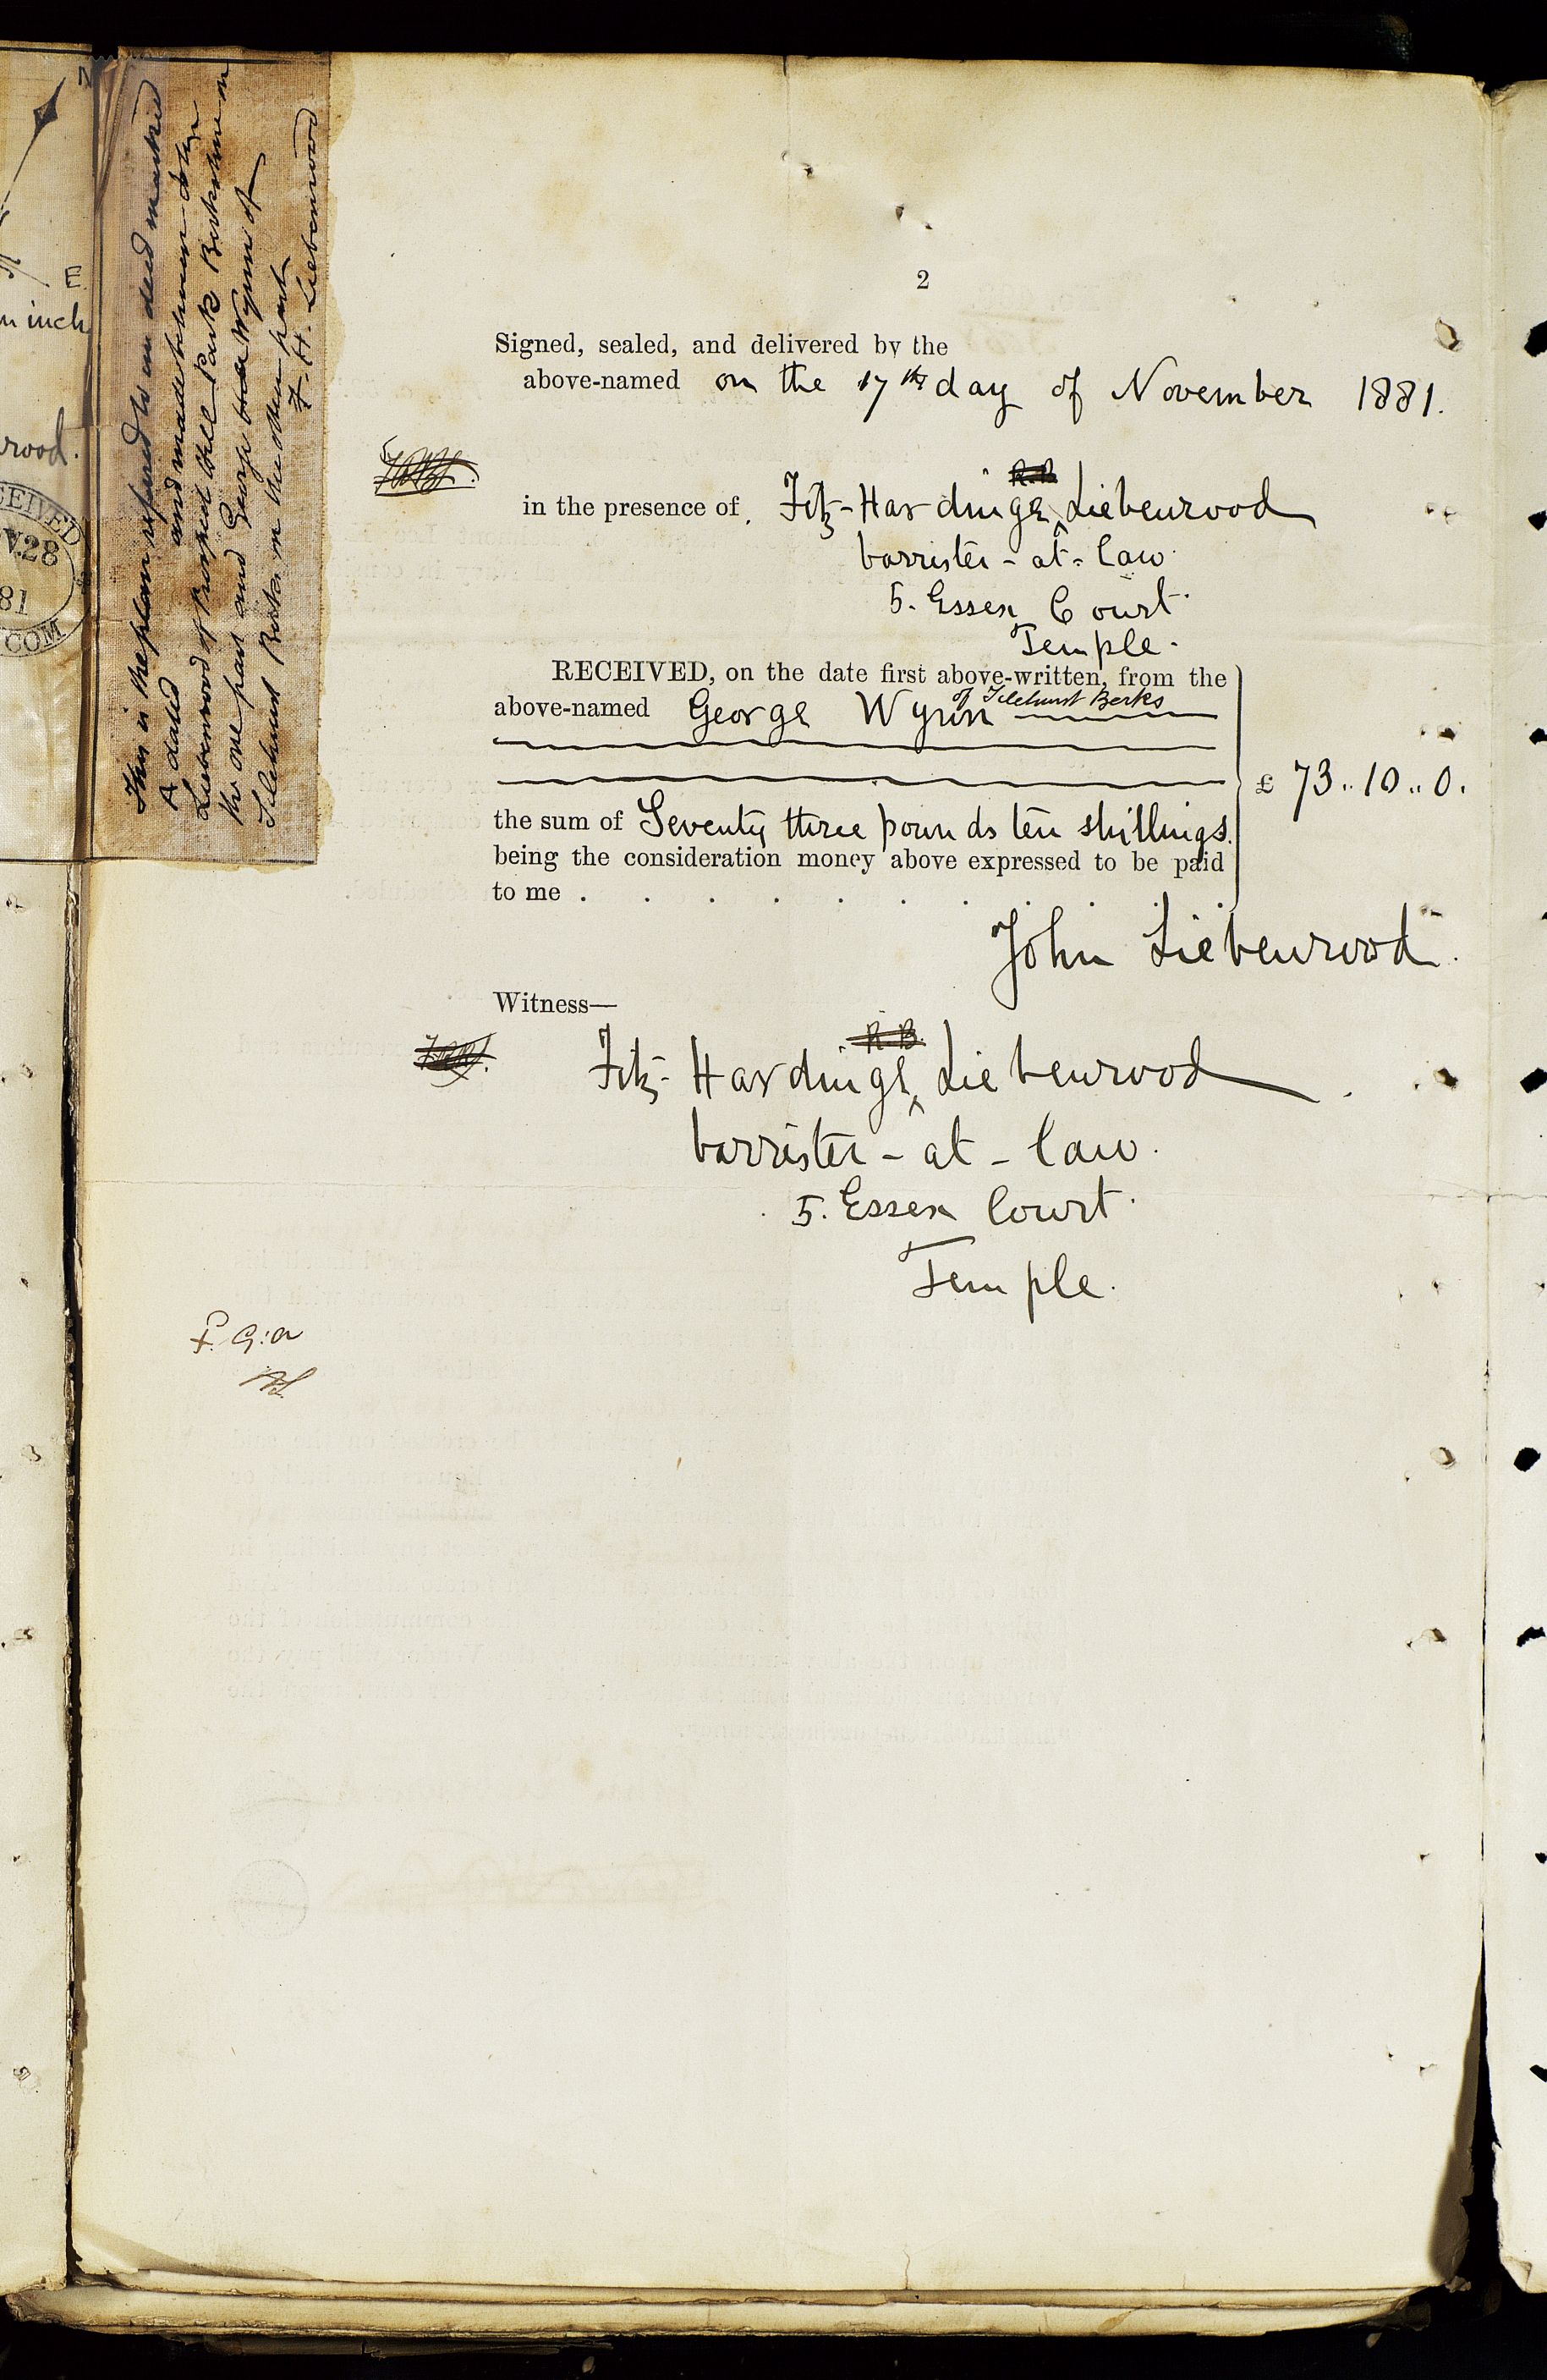 2
Signed, sealed, and delivered by the
above-named on the 17th day of November 1881.
R.B.
in the presence of Fitz-Hardinge Liebenrood
barrister-at-law.
5. Essex Court.
Temple.
RECEIVED, on the date first above-written, from the
of Tilehurst Berks
above-named George Wynn
£ 73..10..0.
the sum of Seventy three pounds ten shillings.
being the consideration money above expressed to be paid
to me . . . . . . . . . .
John Liebenrood.
Witness—
R.B.
Fitz-Hardinge Liebenrood.
barrister-at-law.
5. Essex Court.
Temple.
This is the plan referred to in deed marked
A dated and made between John
Liebenrood of Prospect Hill Park Berkshire on
the one part and George Wynn of
Tilehurst Berks on the other part
F. H. Liebenrood
E.
n inch
rood.
CEIVED
V.28
81
COM